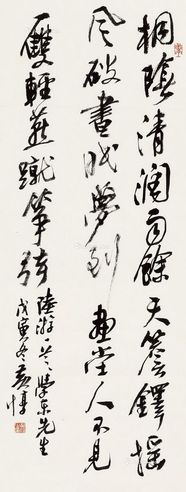 桐陰清潤雨餘天簷鐸搖
風破晝眠夢到畫堂人不見
雙輕燕蹴箏弦
陸游 先生
戊寅冬黃惇